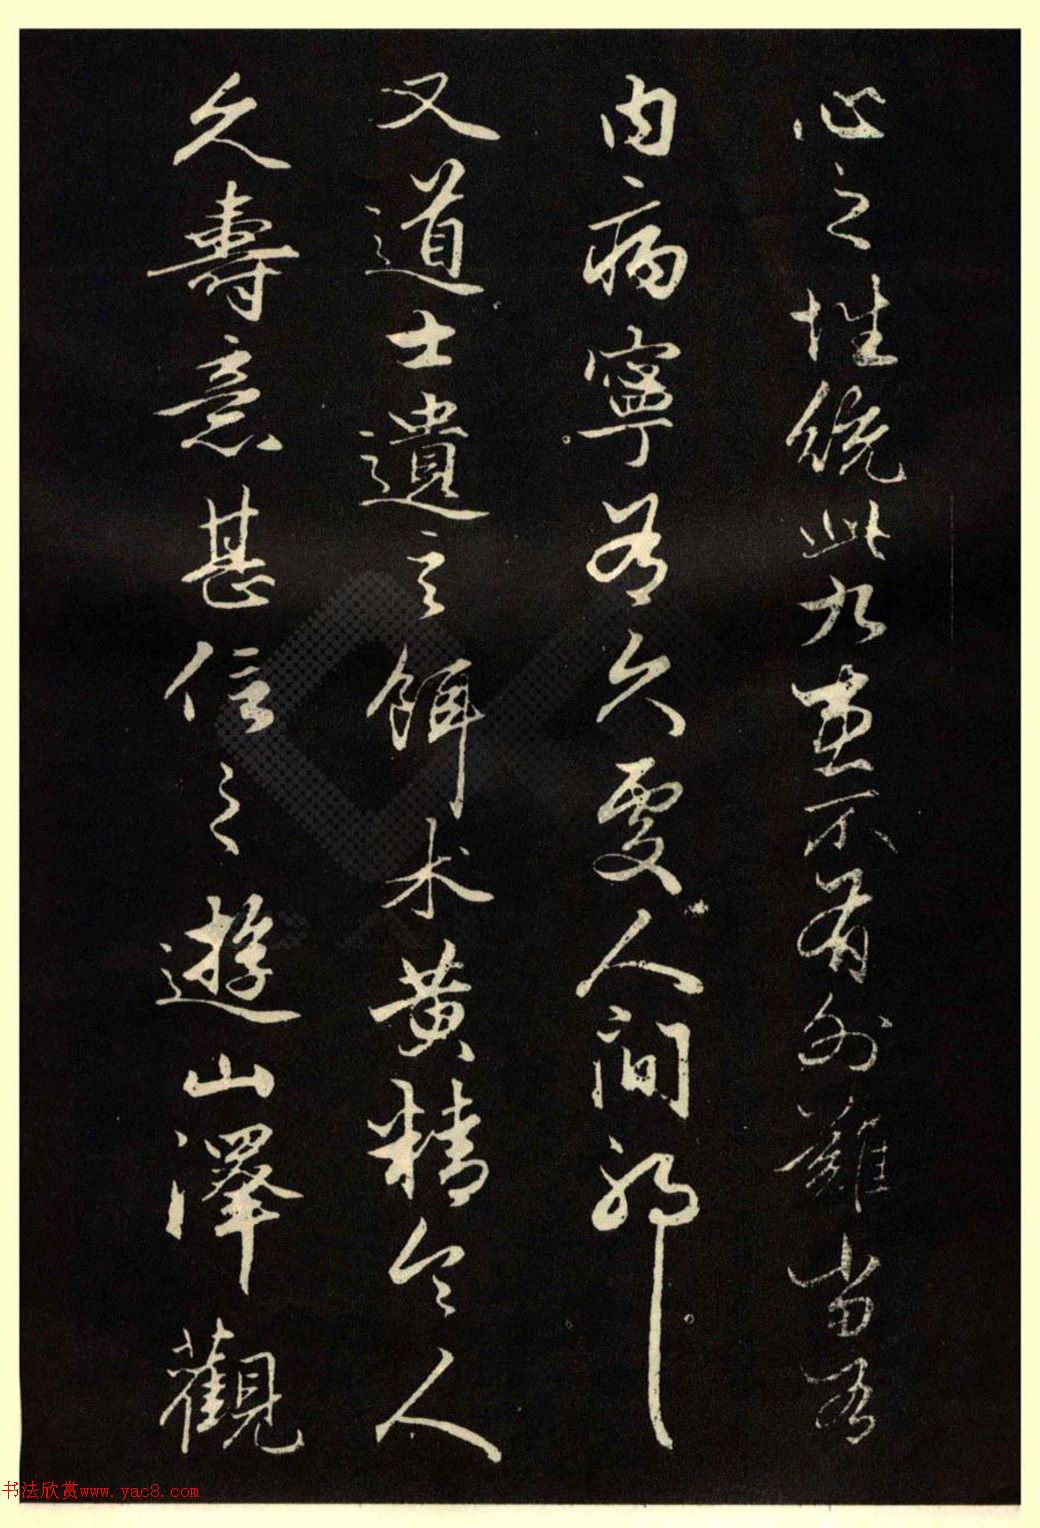 心之性統此九患不有外難當有
内病寧可久處人間耶
又道士遺之餌术黄精令人
久壽意甚信之遊山澤觀
书法欣赏www.yac8.com